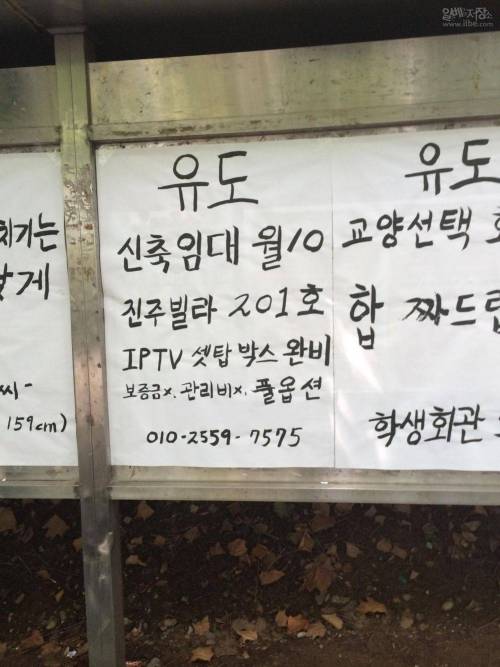 일베저장소
www.ilbe.com
치기는
맞게
씨-
159cm)
유도
신축임대 월10
진주빌라 201호
IPTV 셋탑박스 완비
보증금x. 관리비x. 풀옵션
010-2559-7575
유도
교양선택
합 짜드립
학생회관